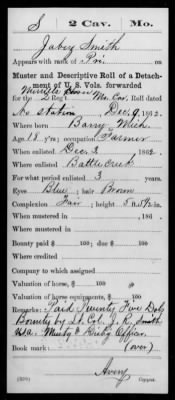 S | 2 Cav. | Mo.
Jabez Smith
Appears with rank of Pri. on
Muster and Descriptive Roll of a Detach-
ment of U. S. Vols. forwarded
for the 2 Reg't Mo. Cav. Roll dated
No station Dec. 9, 1862.
Where born Barry Mich.
Age 18 y'rs; occupation Farmer
When enlisted Dec. 2, 1862.
Where enlisted Battle Creek
For what period enlisted 3 years.
Eyes Blue; hair Brown
Complexion Fair; height 5 ft. in.
When mustered in , 186 .
Where mustered in
Bounty paid $ 100; due $ 100
Where credited
Company to which assigned
Valuation of horse, $ 100
Valuation of horse equipments, $ 100
Remarks: Paid Twenty Five Dols
Bounty by Lt. Col. J. R. Smith
USA. Must'g & Disb'g Officer.
Book mark: (over)
Avery
(339) Copyist.